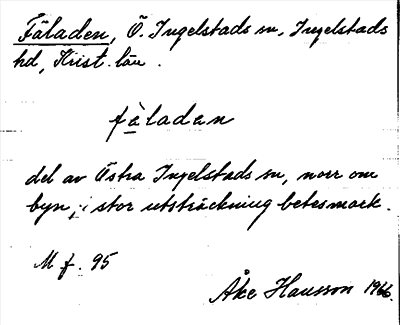 Fäladen, Ö. Ingelstads sn, Ingelstads
hd, Krist. län.
fàladan
del av Östra Ingelstads sn, norr om
byn, i stor utsträckning betesmark.
M f. 95
Åke Hansson 1966.